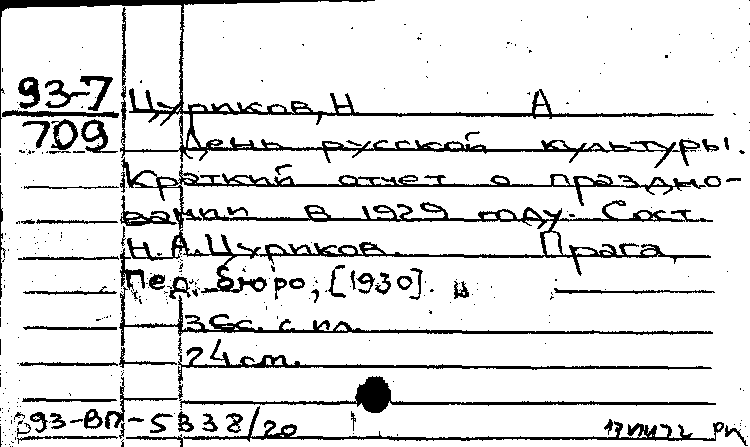 93-7
709
Цуриков, Н А
День русской культуры.
Краткий отчет о праздно-
вании в 1929 году. Сост.
Н.А.Цуриков. Прага,
Пед. бюро, [1930].
36с. с ил.
24 см.
393-ВП-5338/20